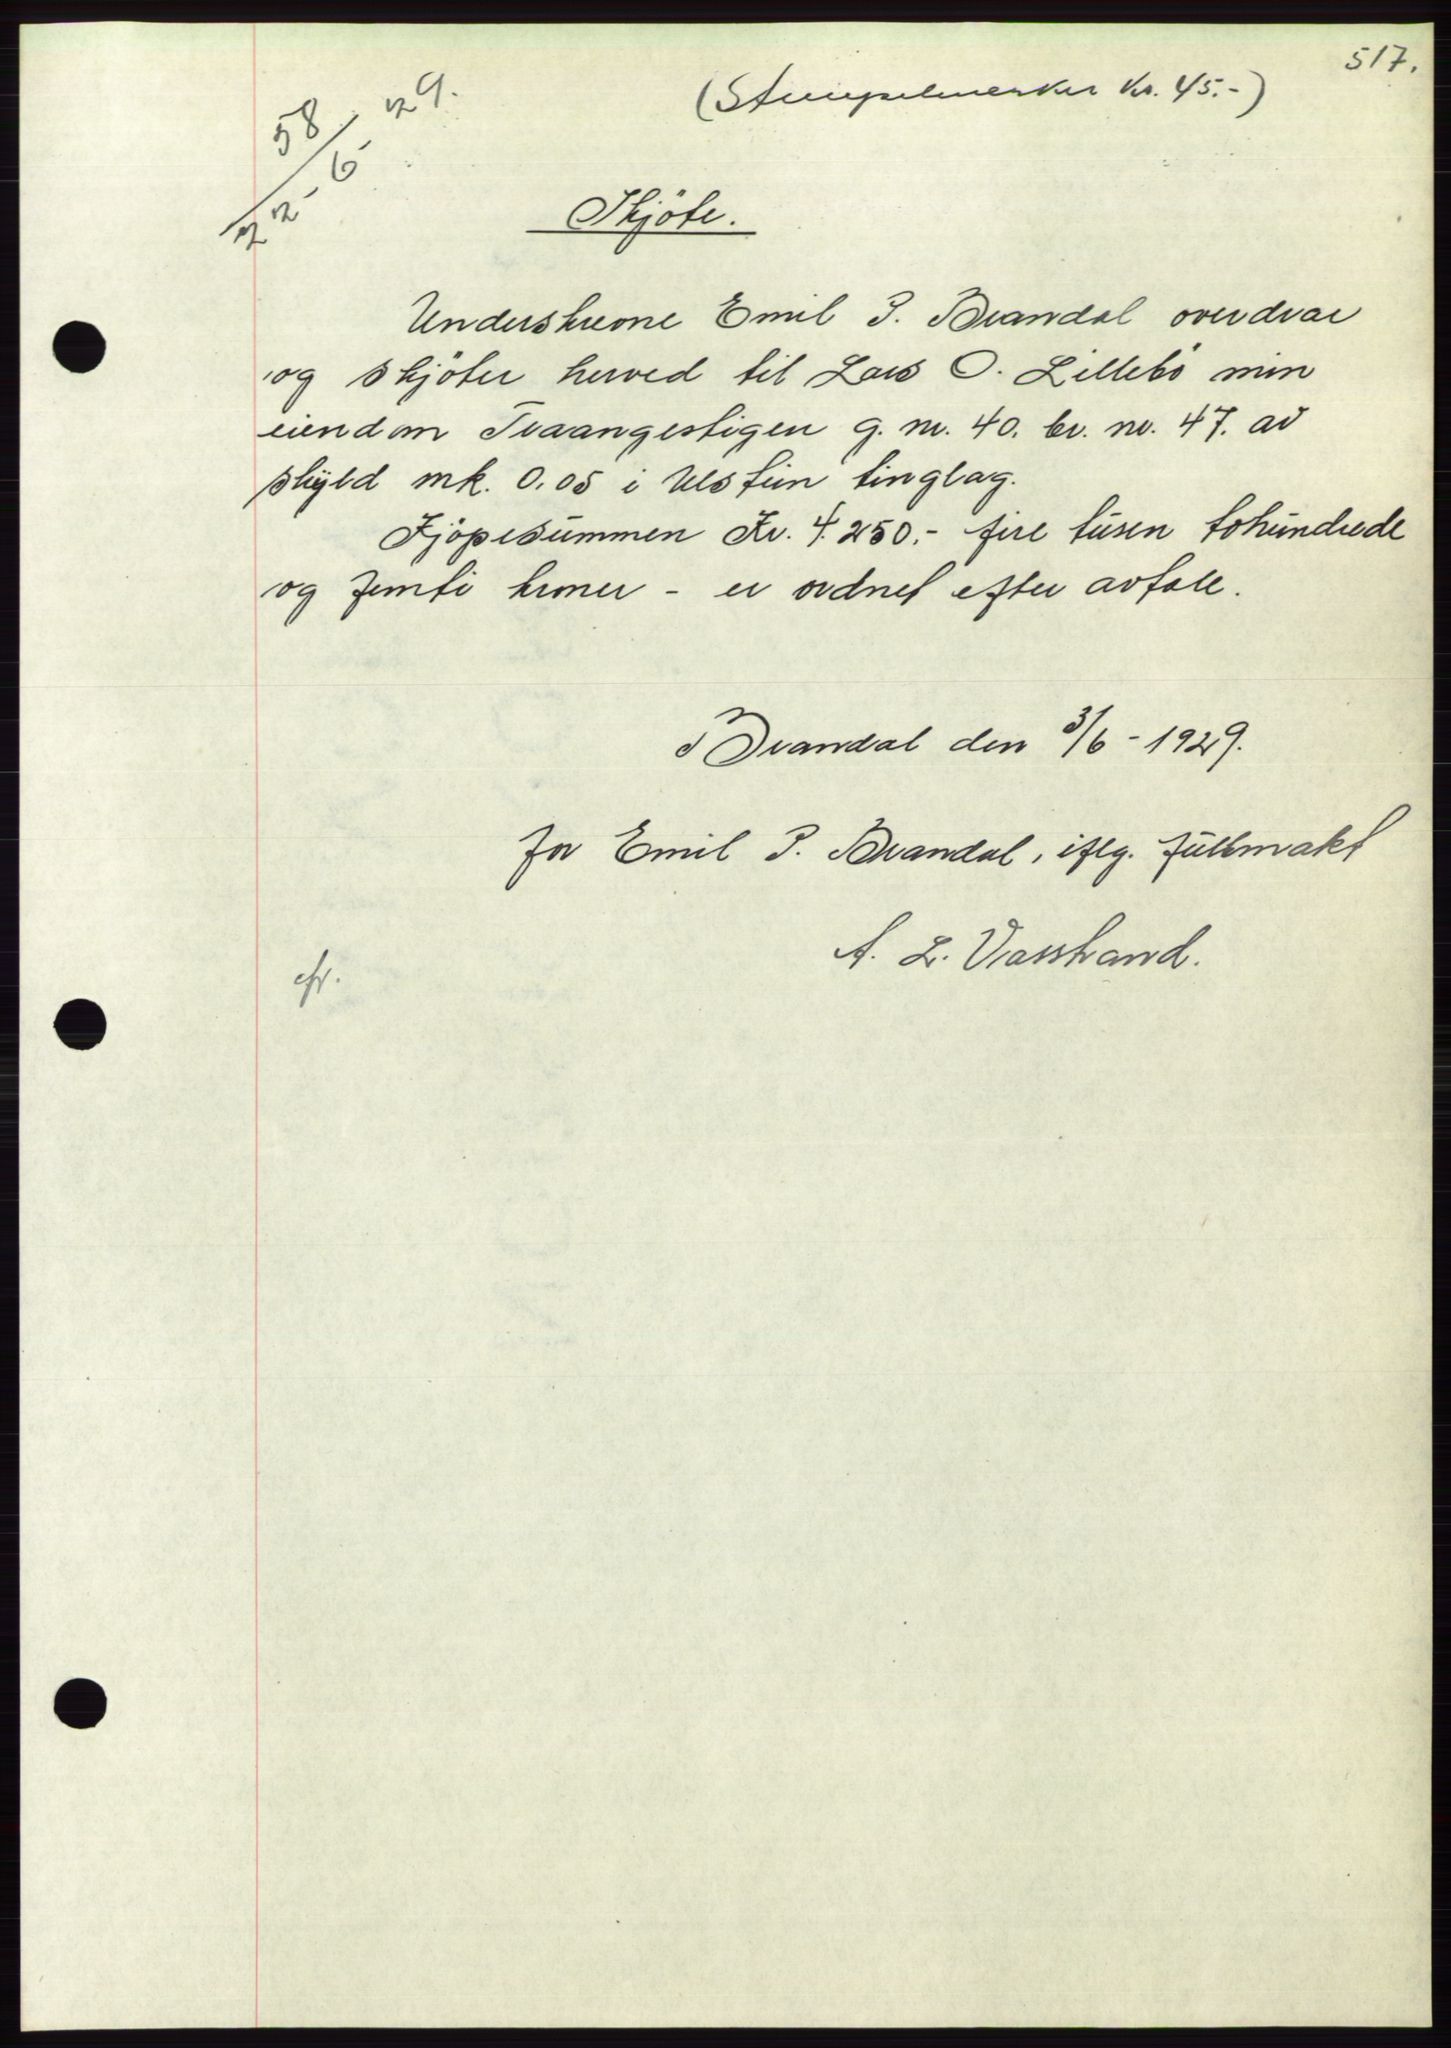 517.
(Stempelmerker kr. 45.-)
58/22-6-29.
Skjöte.
Underskrevne Emil P. Brandal overdrar
og skjöter herved til Lars O. Lillebö min
eiendom Traangestigen g. nr. 40. br. nr. 47. av
skyld mk. 0.05 i Ulstein tinglag.
Kjöpesummen Kr. 4.250.- fire tusen tohundrede
og femti kroner - er ordnet efter avtale.
Brandal den 3/6 - 1929.
for Emil P. Brandal, iflg. fullmakt
A. L. Vasstrand.
cfr.